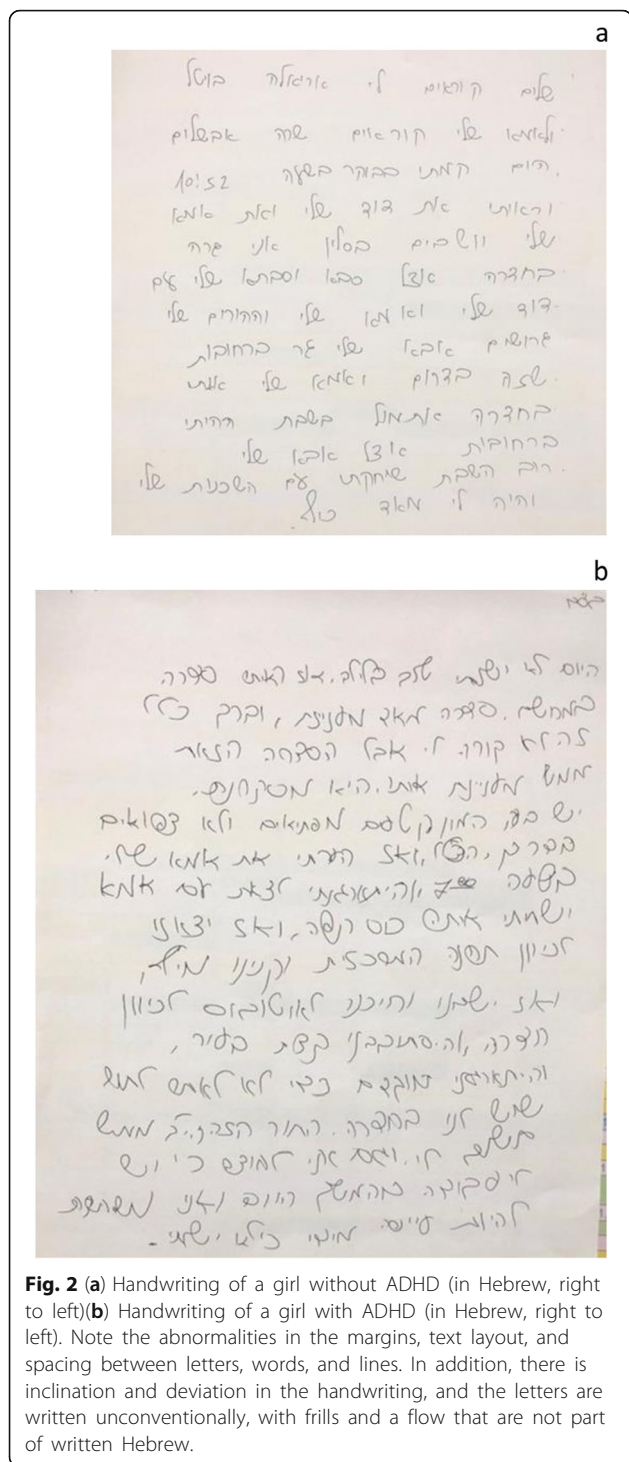 a
שלום קוראים לי אריאלה
ולאמא שלי קוראים שרה אבשלום.
היום קמתי בבוקר בשעה 10:52
וראיתי את דוד שלי ואת אמא
שלי יושבים בסלון אני גרה
בחדרה אצל סבא וסבתא שלי עם
דוד שלי ואמא שלי וההורים שלי
גרושים אבא שלי גר ברחובות
שזה בדרום ואמא שלי איתי
בחדרה אתמול בשבת הייתי
ברחובות אצל אבא שלי
רוב השבת שיחקתי עם השכנות שלי
והיה לי מאד כיף.
b
היום לא ישנתי טוב בלילה, אז ראיתי סדרה
במחשב. סדרה מאד מעניינת, ובדרך כלל
זה לא קורה לי אבל הסדרה הזאת
ממש מעניינת אותי. היא
יש בה המון קטעים מפתיעים ולא צפואים
ואז הערתי את אמא שלי
בשעה והיתארגנתי לצאת עם אמא
ושתיתי כוס קפה, ואז יצאנו
לכיוון תחנה המרכזית וקנינו
ואז ישבנו וחיכנו לאוטובוס לכיוון
חדרה, והיסתובבנו קצת בעיר,
והיתארגנו מוקדם כדי לא לאחר
שיש לנו בחדרה. ממש
לי. וגם אני כי יש
לי עבודה בהמשך היום ואני
להיות כי לא ישנתי.
Fig. 2 (a) Handwriting of a girl without ADHD (in Hebrew, right
to left)(b) Handwriting of a girl with ADHD (in Hebrew, right to
left). Note the abnormalities in the margins, text layout, and
spacing between letters, words, and lines. In addition, there is
inclination and deviation in the handwriting, and the letters are
written unconventionally, with frills and a flow that are not part
of written Hebrew.